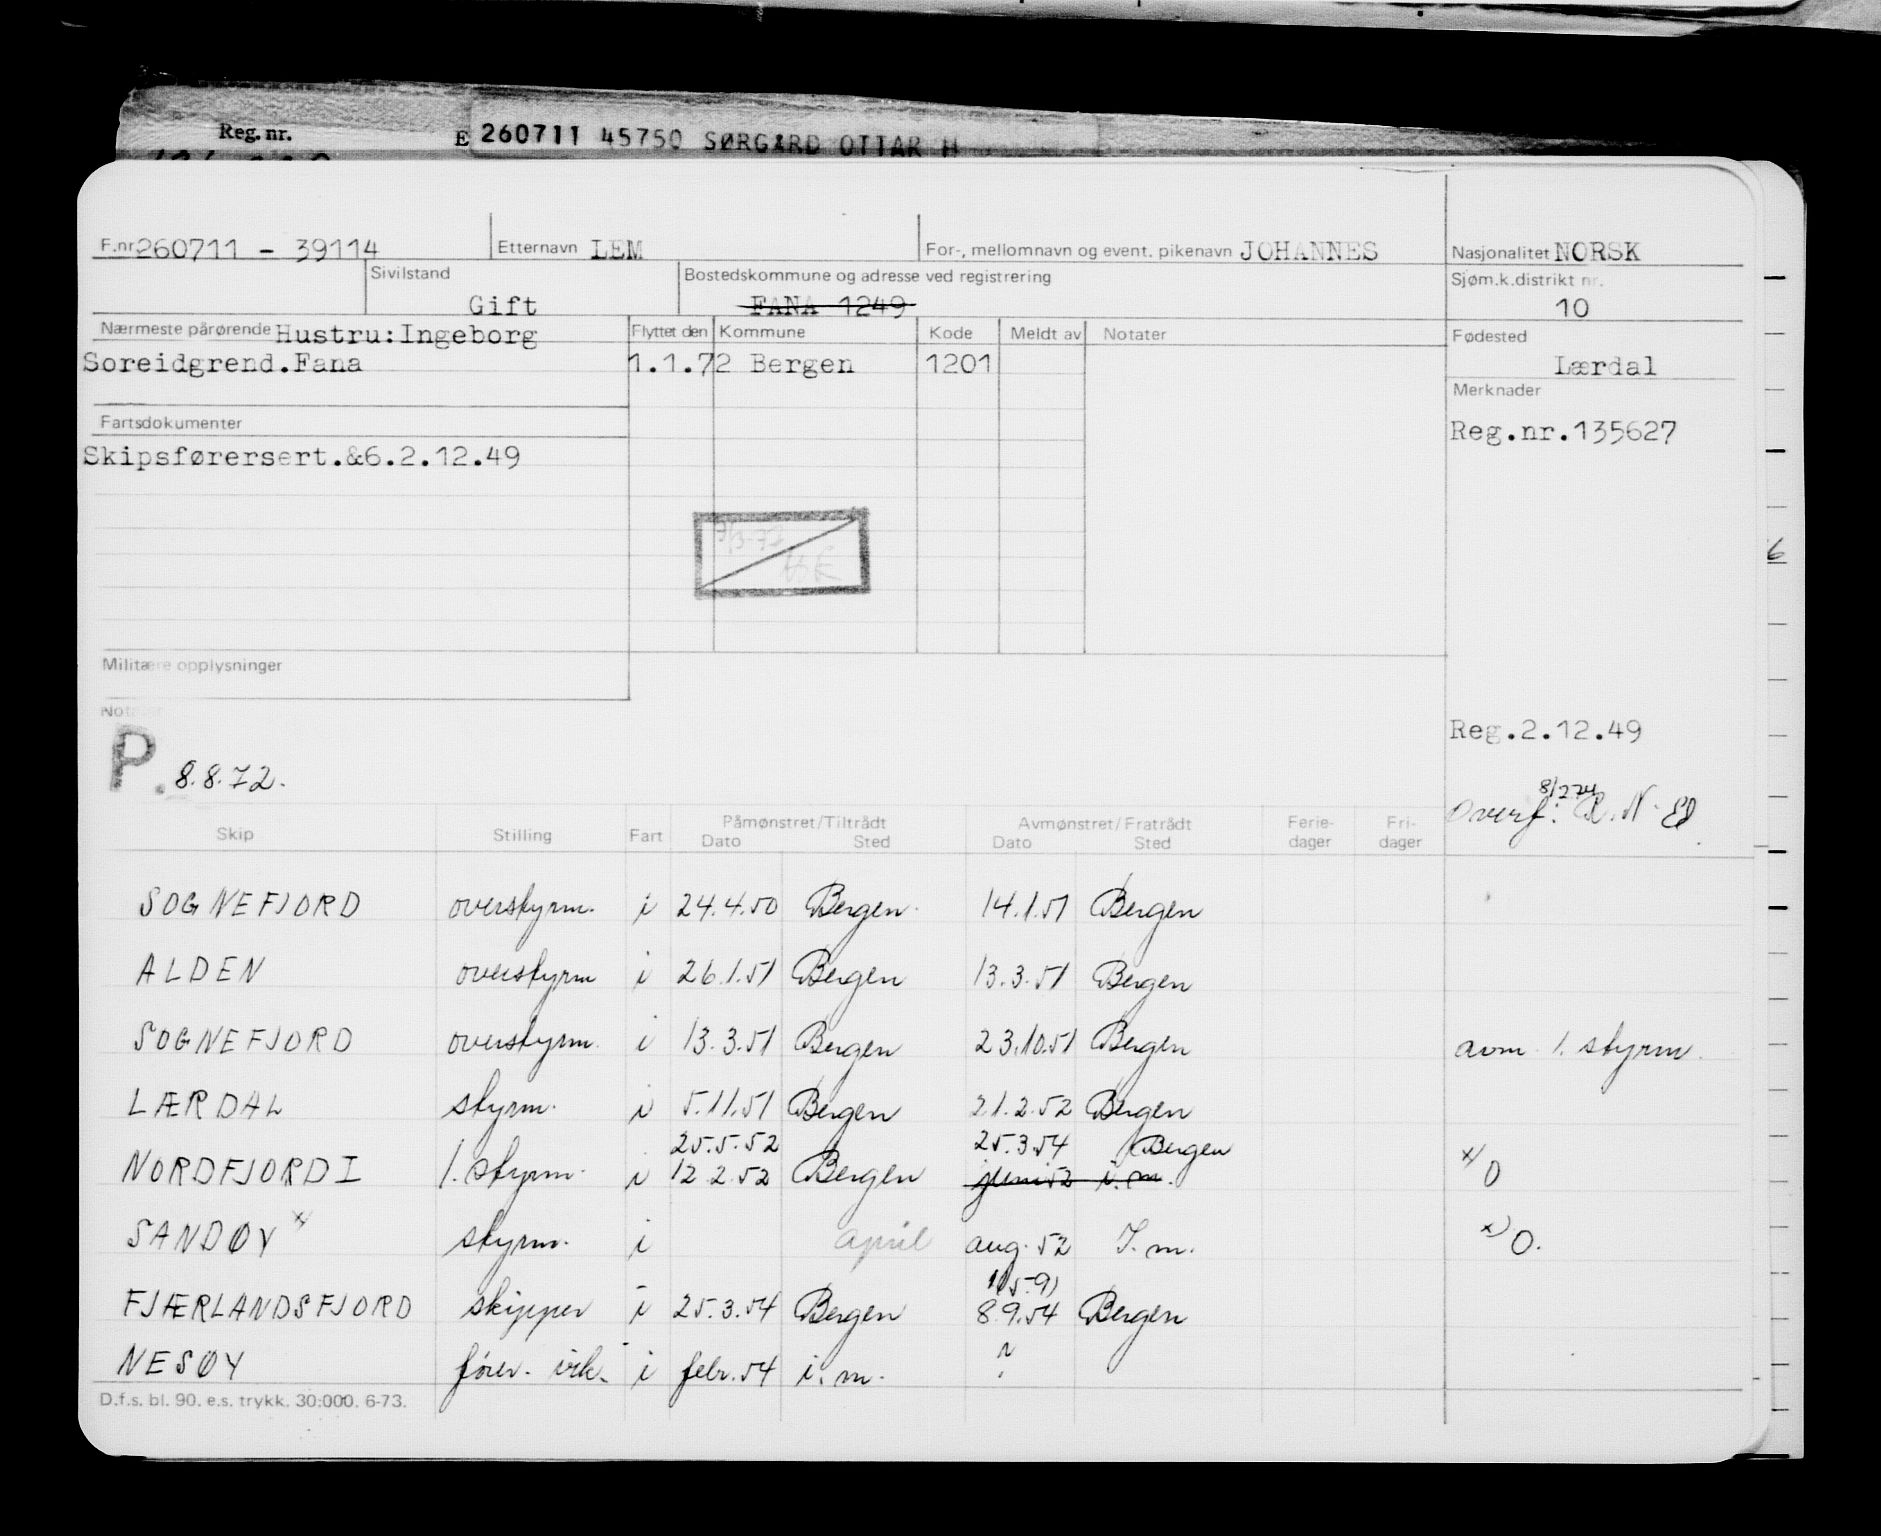 Reg. nr.
E 260711 45750 SØRGÅRD OTTAR H
F.nr. 260711 - 39114 Etternavn LEM For-, mellomnavn og event. pikenavn JOHANNES Nasjonalitet NORSK
Sivilstand Gift Bostedskommune og adresse ved registrering FANA 1249 Sjøm.k.distrikt nr. 10
Nærmeste pårørende Hustru:Ingeborg Flyttet den Kommune Kode Meldt av Notater Fødested
Soreidgrend.Fana 1.1.72 Bergen 1201 Lærdal
Merknader
Fartsdokumenter Reg.nr.135627
Skipsførersert.&6.2.12.49
Militære opplysninger
Notater
Reg.2.12.49
P. 8.8.72.
Overf. R.N.
Skip Stilling Fart Påmønstret/Tiltrådt Dato Sted Avmønstret/Fratrådt Dato Sted Ferie-dager Fri-dager
SOGNEFJORD overstyrm. i 24.4.50 Bergen 14.1.51 Bergen
ALDEN overstyrm i 26.1.51 Bergen 13.3.51 Bergen
SOGNEFJORD overstyrm. i 13.3.51 Bergen 23.10.51 Bergen avm 1. styrm.
LÆRDAL styrm. i 5.11.51 Bergen 21.2.52 Bergen
25.5.52 25.3.54 Bergen
NORDFJORD I 1. styrm. i 12.2.52 Bergen juni 52 i.m. x) O
SANDØY x) styrm. i april aug. 52 I.m. x) O.
FJÆRLANDSFJORD skipper i 25.3.54 Bergen 8.9.54 Bergen
NESØY fører. i febr. 54 i.m. ?
D.f.s. bl. 90. e.s. trykk. 30.000. 6-73.